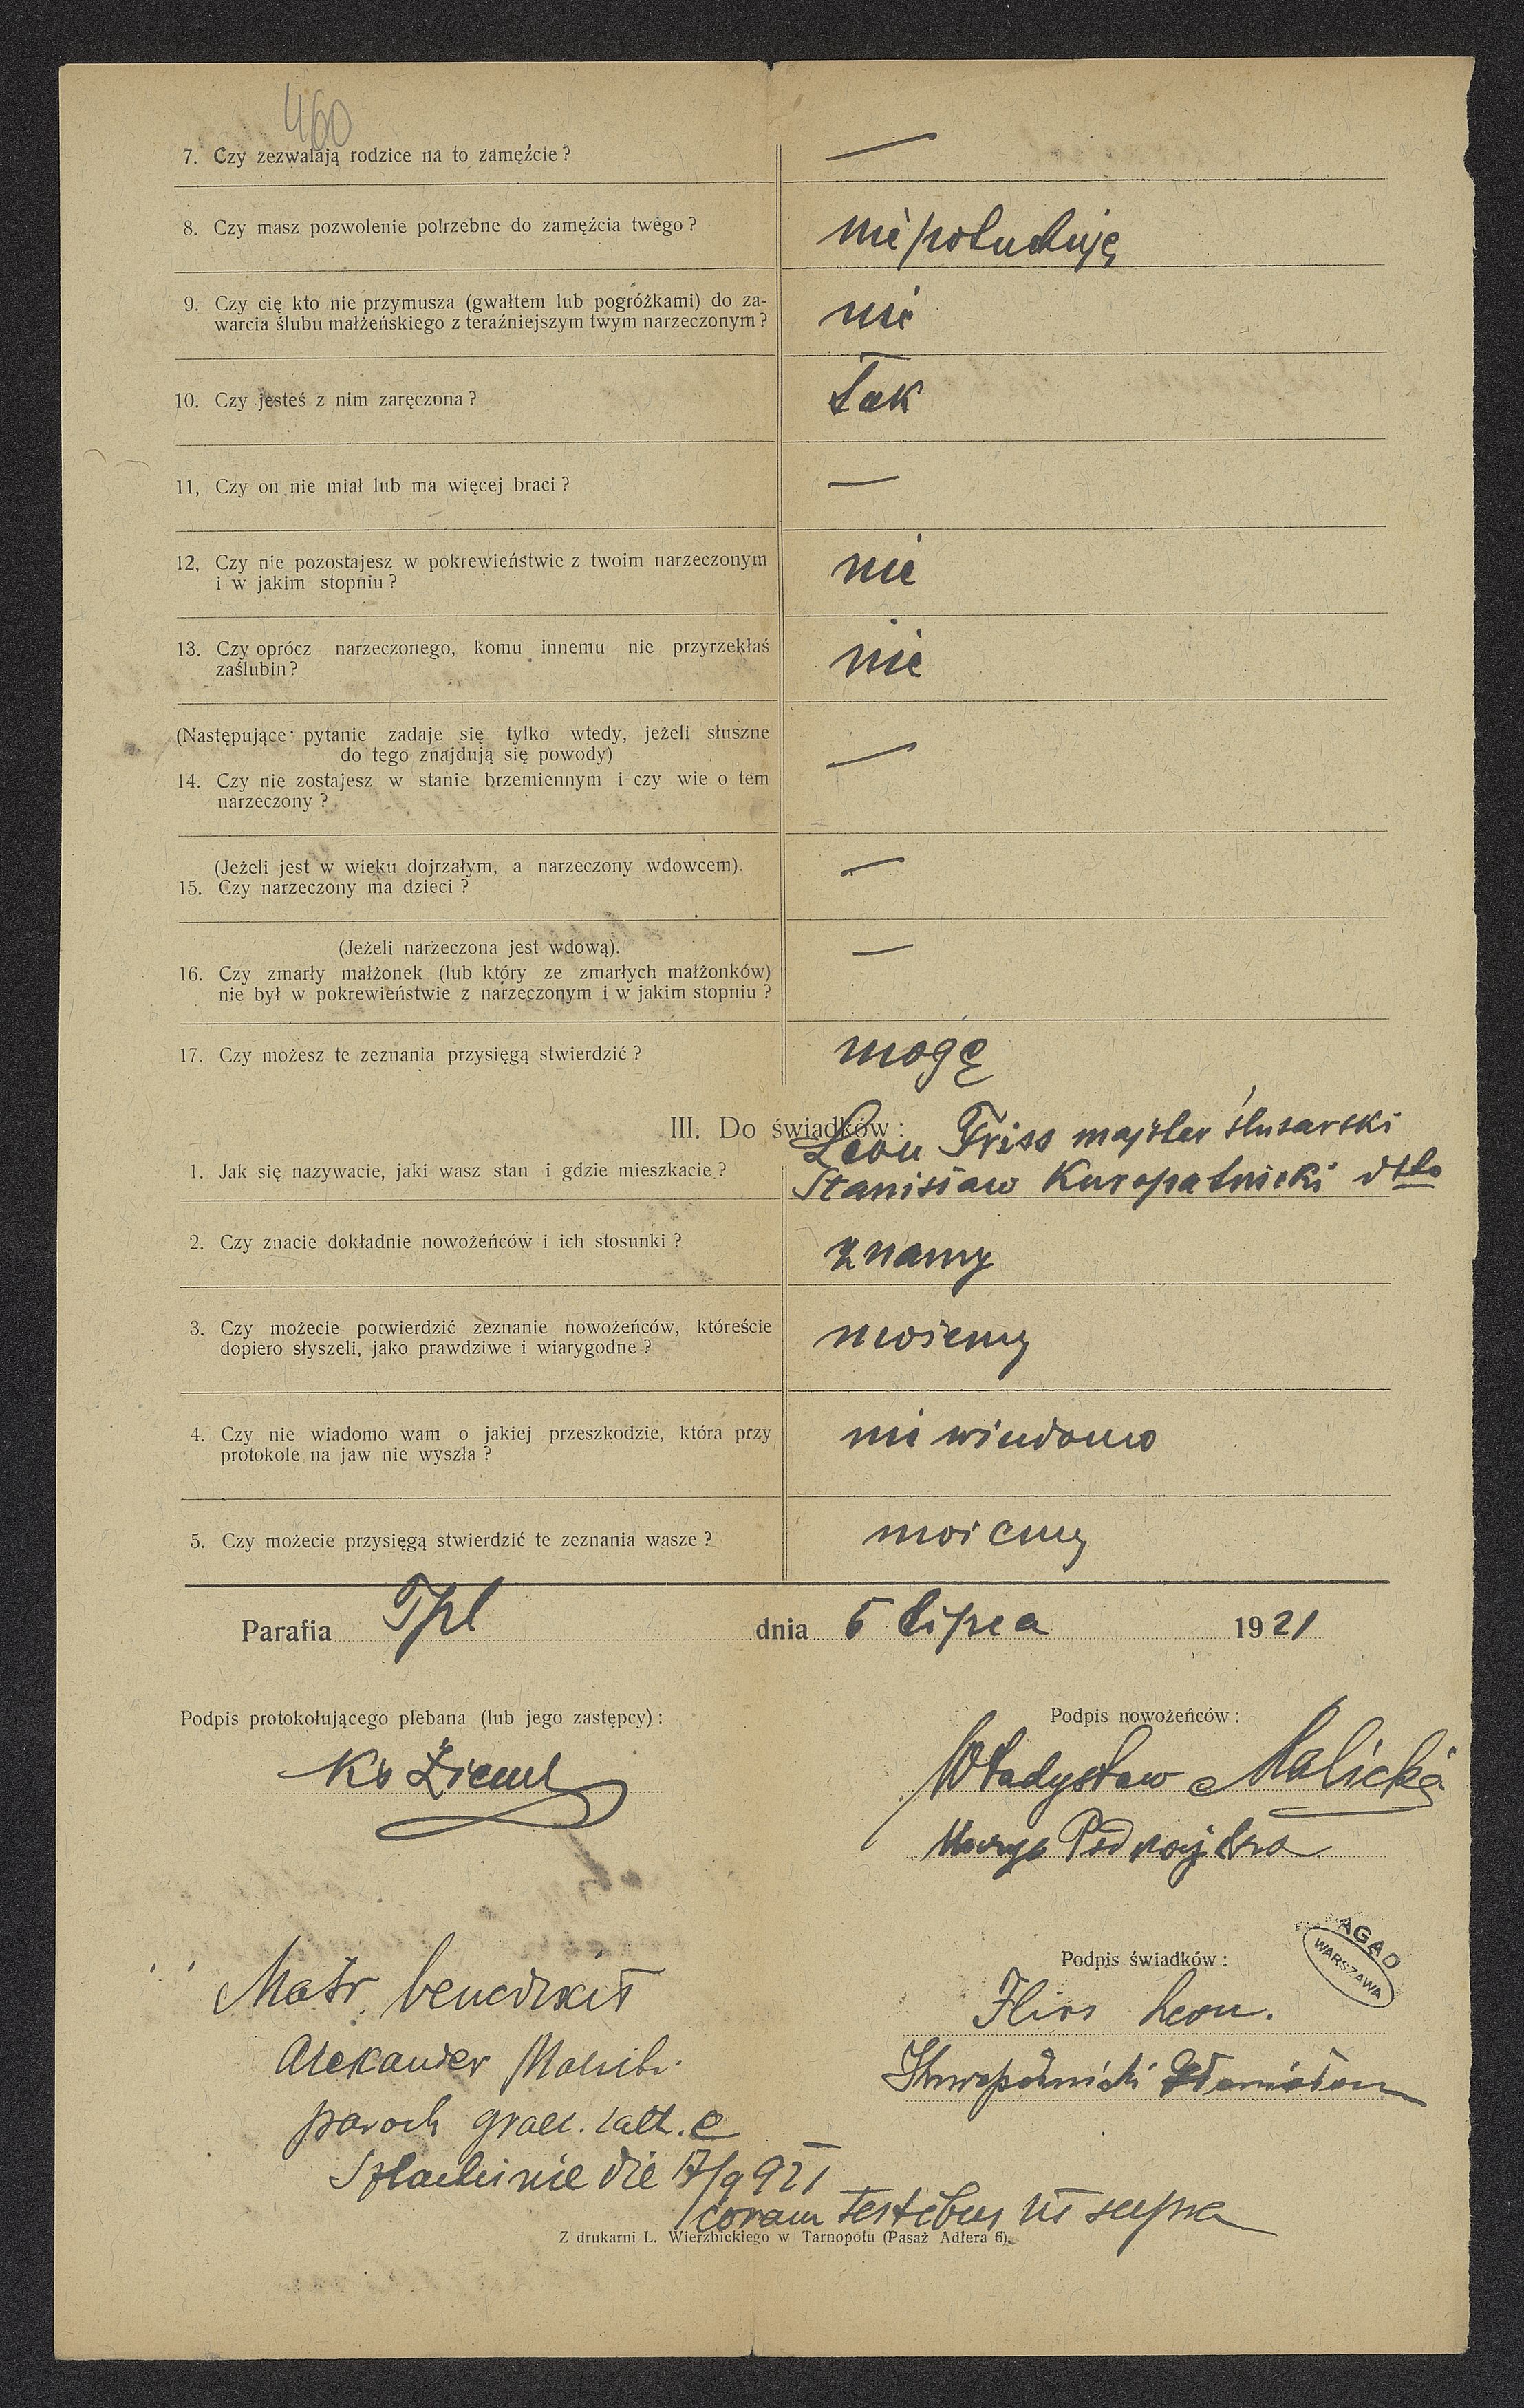 460
7. Czy zezwalają rodzice na to zamęźcie? —
8. Czy masz pozwolenie potrzebne do zamęźcia twego?
9. Czy cię kto nie przymusza (gwałtem lub pogróżkami) do za-
warcia ślubu małżeńskiego z teraźniejszym twym narzeczonym? nie
10. Czy jesteś z nim zaręczona? tak
11, Czy on nie miał lub ma więcej braci? —
12, Czy nie pozostajesz w pokrewieństwie z twoim narzeczonym
i w jakim stopniu? nie
13. Czy oprócz narzeczonego, komu innemu nie przyrzekłaś
zaślubin? nie
(Następujące pytanie zadaje się tylko wtedy, jeżeli słuszne
do tego znajdują się powody) —
14. Czy nie zostajesz w stanie brzemiennym i czy wie o tem
narzeczony?
(Jeżeli jest w wieku dojrzałym, a narzeczony wdowcem). —
15. Czy narzeczony ma dzieci?
(Jeżeli narzeczona jest wdową). —
16. Czy zmarły małżonek (lub który ze zmarłych małżonków)
nie był w pokrewieństwie z narzeczonym i w jakim stopniu?
17. Czy możesz te zeznania przysięgą stwierdzić? mogę
III. Do świadków:
Leon Friss majster ślusarski
1. Jak się nazywacie, jaki wasz stan i gdzie mieszkacie? Stanisław Kuropatnicki dtto
2. Czy znacie dokładnie nowożeńców i ich stosunki? znamy
3. Czy możecie potwierdzić zeznanie nowożeńców, któreście
dopiero słyszeli, jako prawdziwe i wiarygodne? możemy
4. Czy nie wiadomo wam o jakiej przeszkodzie, która przy
protokole na jaw nie wyszła? nie wiadomo
5. Czy możecie przysięgą stwierdzić te zeznania wasze? możemy
Parafia Tpl dnia 5 lipca 1921
Podpis protokołującego plebana (lub jego zastępcy):
Podpis nowożeńców:
Ks
Władysław Malicki
Marya
AGAD
WARSZAWA
Podpis świadków:
Matr. benedixit
Leon.
Alexander
Kuropatnicki Stanisław
paroch graec. cath. e
die 17/9 921
coram testibus ut supra
Z drukarni L. Wierzbickiego w Tarnopolu (Pasaż Adlera 6).